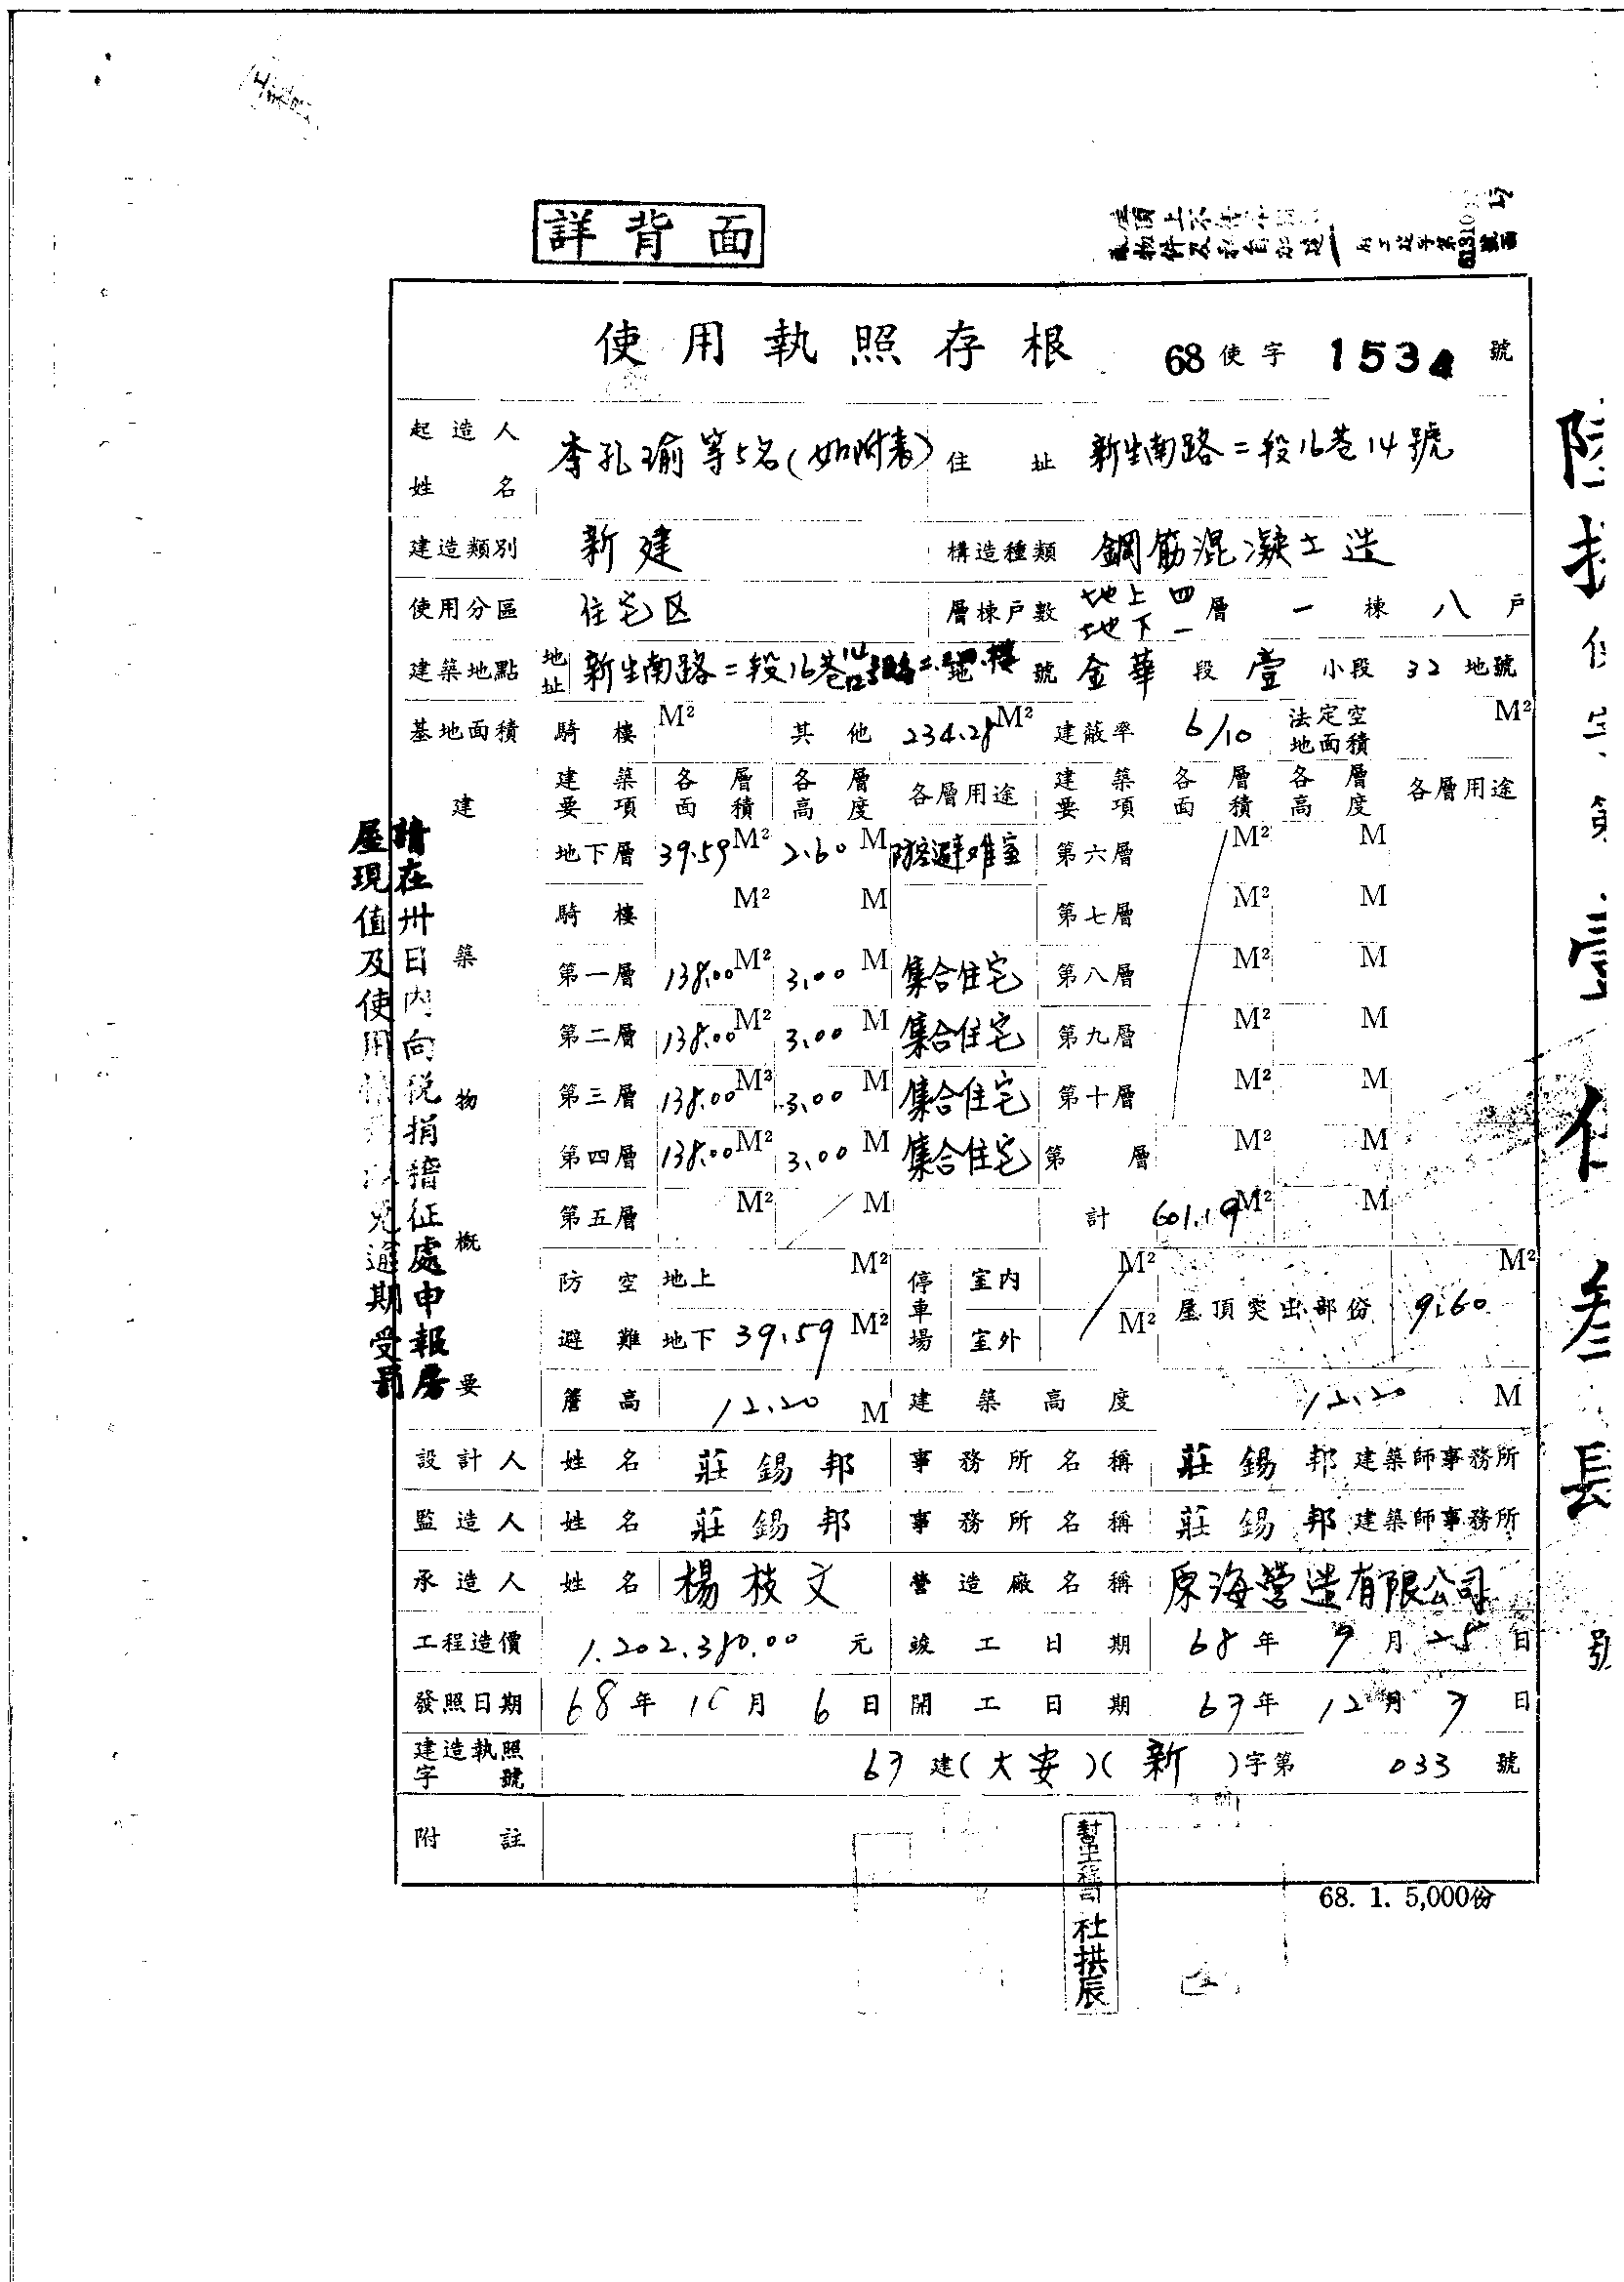 詳背面
使用執照存根 68使字1534號
起造人姓名 李孔瑜等5名(如附表) 住址 新生南路二段16巷14號
建造類別 新建 構造種類 鋼筋混凝土造
使用分區 住宅区 層棟戶數 地上四地下一層 一棟 八戶
建築地點 地址 新生南路二段16巷 號 金華段 壹小段 32地號
基地面積 騎樓 M² 其他 234.28M² 建蔽率 6/10 法定空地面積 M²
建築物概要
建築要項 各層面積 各層高度 各層用途 建築要項 各層面積 各層高度 各層用途
地下層 39.59M² 2.60M 防空避难室 第六層 M² M
騎樓 M² M 第七層 M² M
第一層 138.00M² 3.00M 集合住宅 第八層 M² M
第二層 138.00M² 3.00M 集合住宅 第九層 M² M
第三層 138.00M² 3.00M 集合住宅 第十層 M² M
第四層 138.00M² 3.00M 集合住宅 第 層 M² M
第五層 M² M 計 601.19M² M
防空避難 地上 M² 停車場 室內 M² 屋頂突出部份 9.60 M²
地下 39.59M² 室外 M²
簷高 12.20M 建築高度 12.20M
設計人 姓名 莊錫邦 事務所名稱 莊錫邦建築師事務所
監造人 姓名 莊錫邦 事務所名稱 莊錫邦建築師事務所
承造人 姓名 楊枝文 營造廠名稱 原海營造有限公司
工程造價 1.202.380.00元 竣工日期 68年9月25日
發照日期 68年10月6日 開工日期 67年12月7日
建造執照字號 67建(大安)(新)字第033號
附註
68. 1. 5,000份
請在卅日內向稅捐稽征處申報房
屋現值及使用 免逾期受罰
杜拱辰